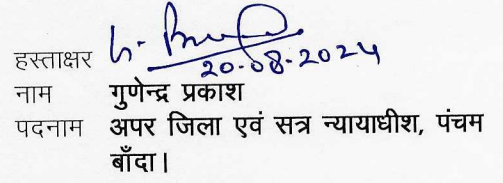 हस्ताक्षर
20-08-2024
नाम गुणेन्द्र प्रकाश
पदनाम अपर जिला एवं सत्र न्यायाधीश, पंचम
बाँदा।